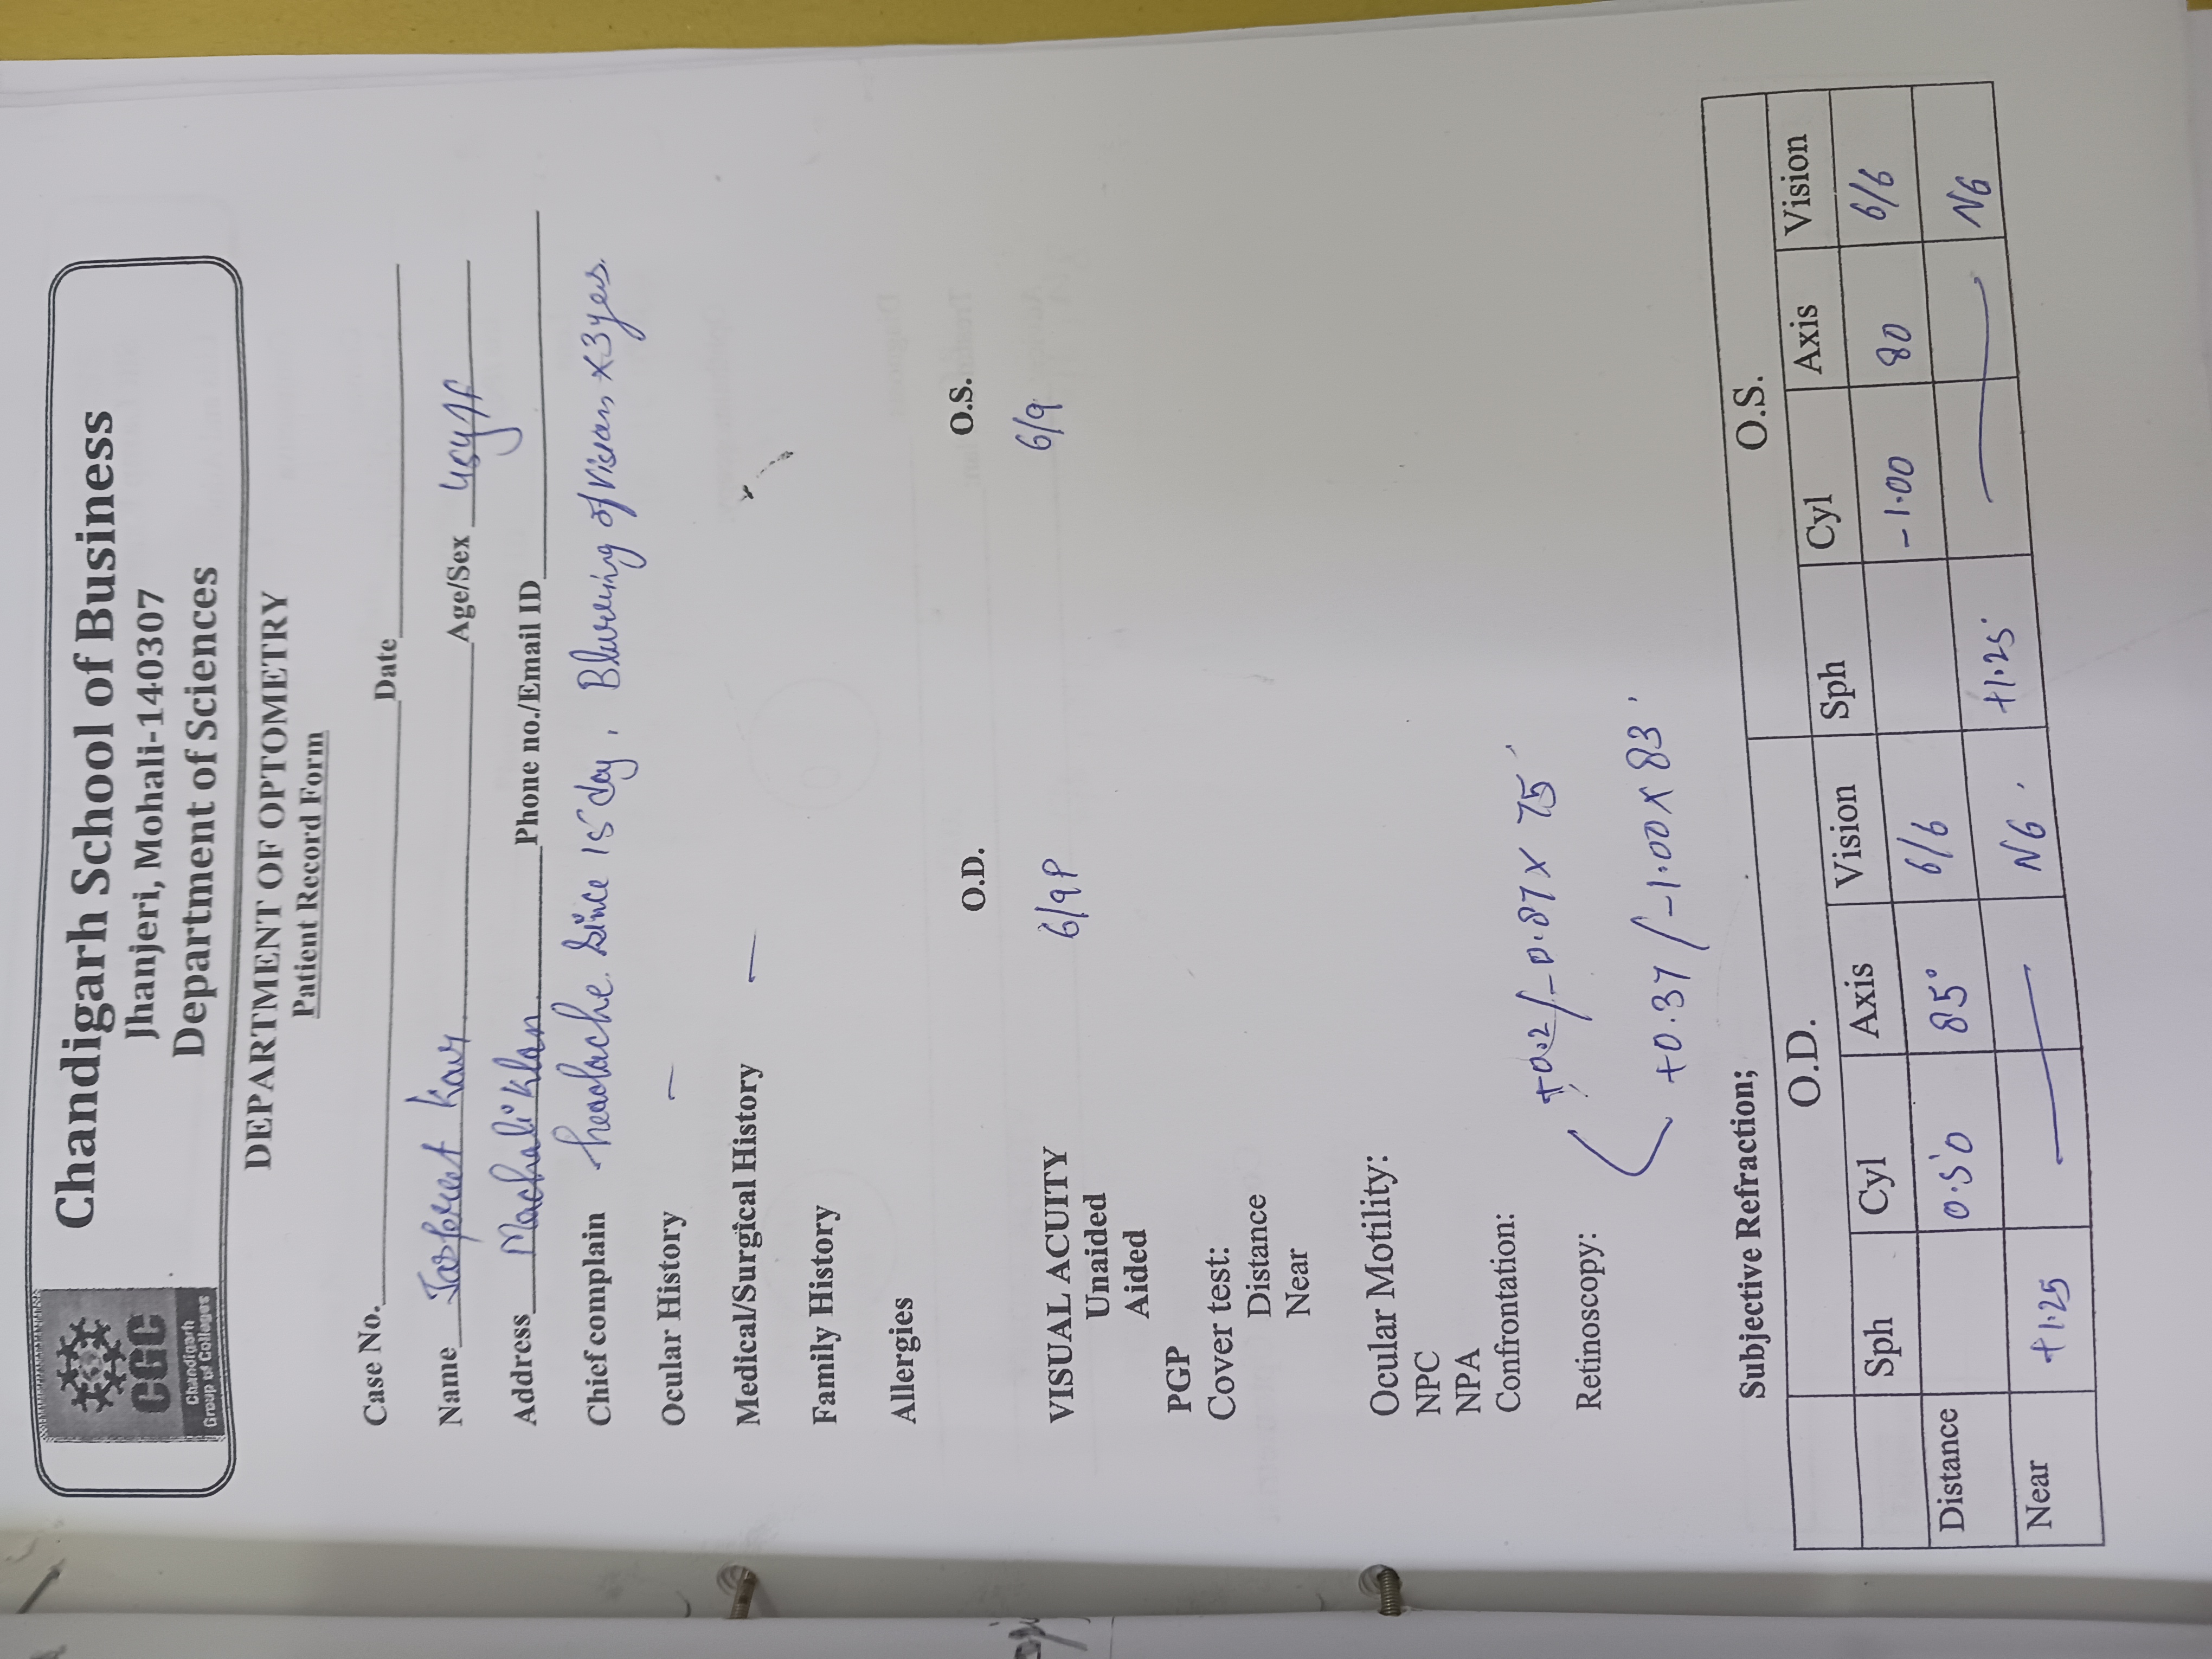 CGC
Chandigarh
Group of Colleges
Chandigarh School of Business
Jhanjeri, Mohali-140307
Department of Sciences
DEPARTMENT OF OPTOMETRY
Patient Record Form
Case No. Date
Name Jaspreet Kaur Age/Sex 45y/f
Address Machali Klan Phone no./Email ID
Chief complain headache. Since 15 day, Blurring of Vision x 3 yers.
Ocular History —
Medical/Surgical History —
Family History
Allergies
O.D. O.S.
VISUAL ACUITY 6/9P 6/9
Unaided
Aided
PGP
Cover test:
Distance
Near
Ocular Motility:
NPC
NPA
Confrontation:
+0.2/-0.87 x 75
Retinoscopy:
+0.37/-1.00 x 83
Subjective Refraction;
O.D. O.S.
Sph Cyl Axis Vision Sph Cyl Axis Vision
Distance 0.50 85° 6/6 -1.00 80 6/6
Near +1.25 — N6 +1.25 — N6